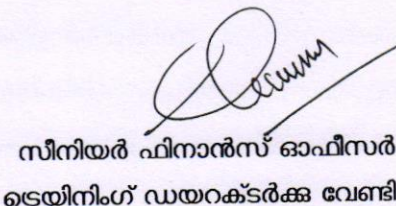 സീനിയർ ഫിനാൻസ് ഓഫീസർ
ട്രെയിനിംഗ് ഡയറക്ടർക്കു വേണ്ടി